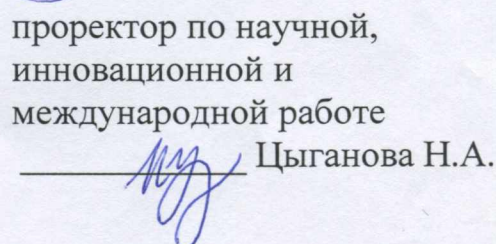 проректор по научной,
инновационной и
международной работе
Цыганова Н.А.